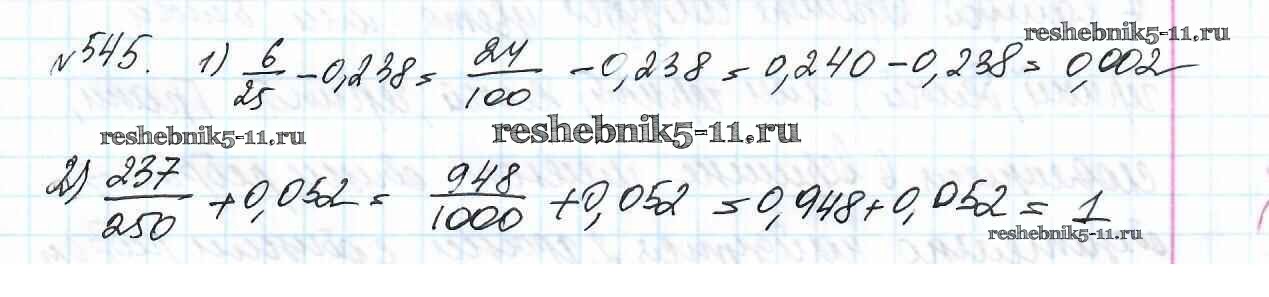 reshebnik5-11.ru
№545. 1) 6/25 - 0,238 = 24/100 - 0,238 = 0,240 - 0,238 = 0,002
reshebnik5-11.ru reshebnik5-11.ru
2) 237/250 + 0,052 = 948/1000 + 0,052 = 0,948 + 0,052 = 1
reshebnik5-11.ru